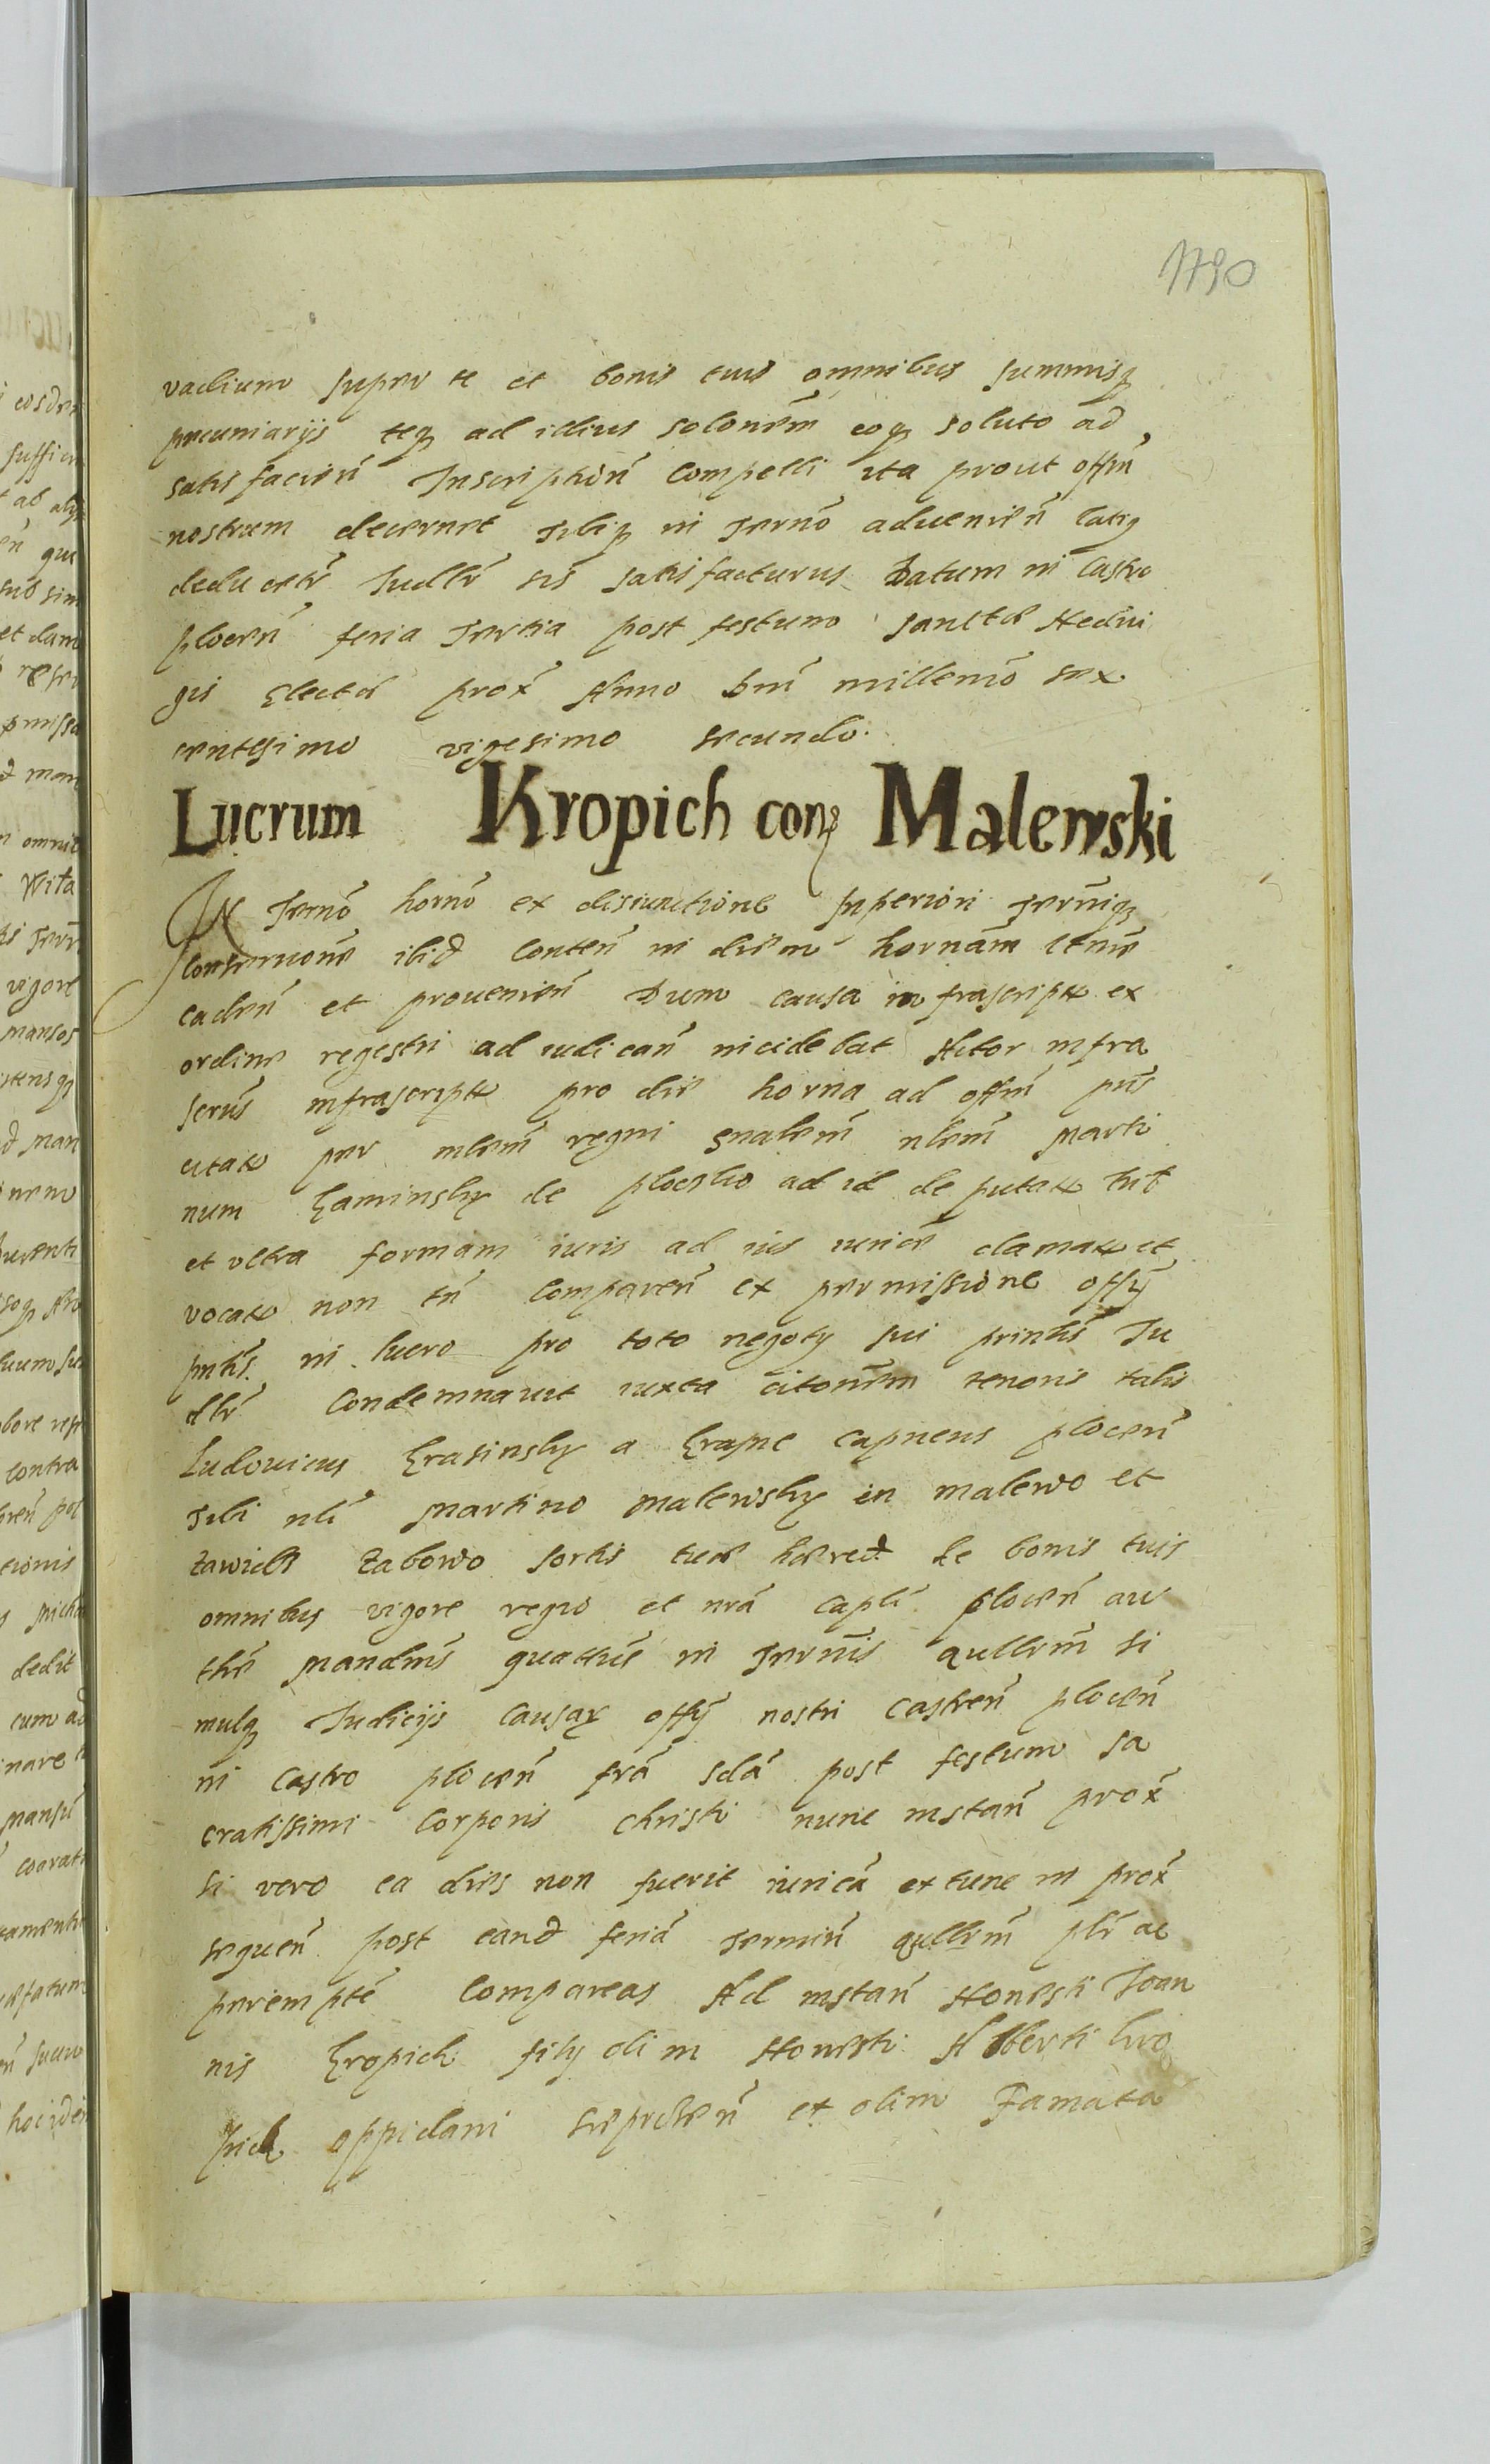 1790
vadium super te et bonis tuis omnibus summisq
pecuniarijs teq ad illius solonem eoq soluto ad
satisfacien Inscription compelli ita prout offm
nostrum decernet Tibiq in Termo aduenien latiq
deducetr Iudllr sis satisfacturus Datum in Castro
plocen feria Tertia post festum Sanctæ Hedui
gis Electæ prox Anno Dni millemo sex
centesimo vigesimo secundo.
Lucrum Kropich con Malewski
IN Termo horno ex disiunctione superiori Terniq
conseruone ibid conten in diem hornam
caden et prouenien Dum causa infrascripta ex
ordine regestri adiudican incidebat Actor infra
scrus infrascripte pro die horna ad offm pns
citate per mlem regni gnalem nlem Marti
num Kaminsky de plocsko ad id deputate
et vltra formam iuris ad ius iurice clamate et
vocate non tn comparen ex permissione offy
pntis in lucro pro toto negoty sui printis Iu
dlr Condemnauit iuxta citonem tenoris talis
Ludouicus Krasinsky a Krasne Capneus plocen
Tibi nli Martino Malewsky in malewo et
zawicll zabowo sortis tuæ hæred de bonis tuis
omnibus vigore regio et nra capli plocen au
the Mandms quattus in Termis qullrm si
mulq Iudicijs causar offy nostri castren plocen
in Castro plocen fra scda post festum Sa
cratissimi Corporis Christi nunc instan prox
si vero ea dies non fuerit iurica extunc in prox
sequen post eand feria Termin qullrm plr ac
perempte compareas Ad instan Honesti Joan
nis Kropich fily olim Honesti Alberti kro
pich oppidani Sieprcen et olim Famata